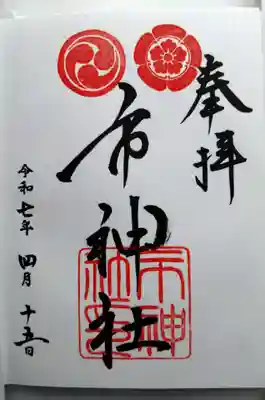 奉拝
市神社
令和七年 四月 十五日